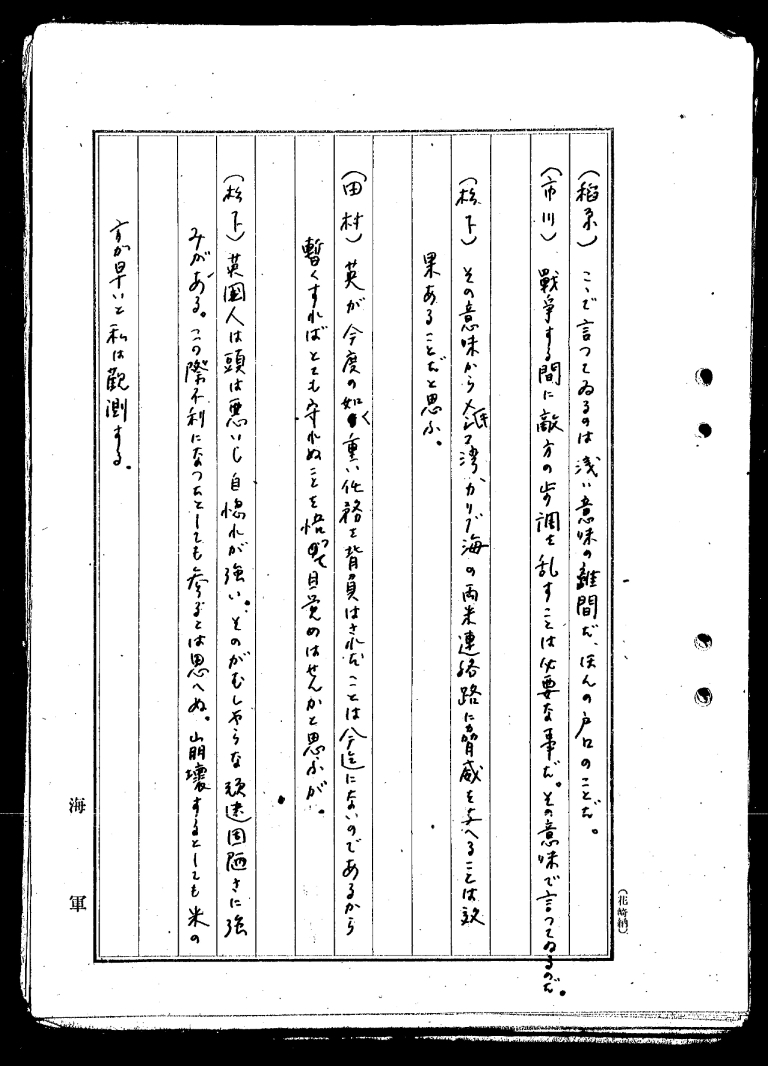 (稲原)こゝで言つてゐるのは浅い意味の離間だ、ほんの戸口のことだ。
(市川)戦争する間に敵方の歩調を乱すことは必要な事だ。その意味で言つてゐるのだ。
(松下)その意味から 湾かリブ海の両米連絡路に脅威を与へることは效
果あることだと思ふ。
(田村)英が今度の如く重い任務を背負はされたことは今迄にないのであるから
暫くすればとても守れぬことを悟つて目覚めはせんかと思ふが。
(松下)英国人は頭は悪いし自惚れが強い。そのがむしやらな頑迷固陋さに強
みがある。この際不利になつたとしても参るとは思へぬ。崩壊するとしても米の
方が早いと私は観測する。
海軍
(花崎納)